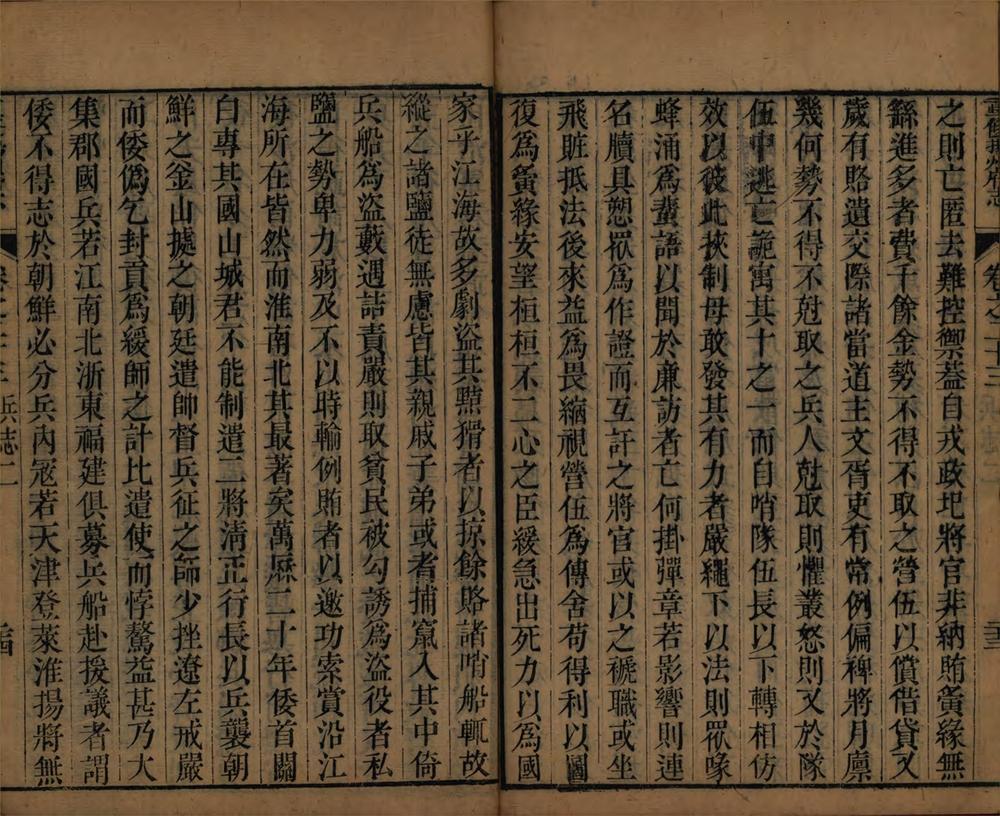 之則亡匿去難控禦蓋自戎政圮將官非納賄夤緣無
繇進多者費千餘金勢不得不取之營伍以償借貸又
歲有賂遺交際諸當道主文胥吏有常例偏裨將月廪
幾何勢不得不尅取之兵人尅取則懼叢怒則又於隊
伍中逃亡詭寓其十之一而自哨隊伍長以下轉相仿
效以彼此挾制毋敢發其有力者嚴繩下以法則眾喙
蜂涌爲蜚語以聞於亷訪者亡何掛彈章若影響則連
名牘具恕眾爲作證而互訐之將官或以之褫職或坐
飛賍抵法後來益爲畏縮視營伍爲傳舍苟得利以圖
復爲夤緣安望桓桓不二心之臣緩急出死力以爲國
家乎江海故多劇盜其黠猾者以掠餘賂諸哨船輒故
縱之諸鹽徒無慮皆其親戚子弟或者捕竄入其中倚
兵船爲盜藪遇詰責嚴則取貧民被勾誘爲盜役者私
鹽之勢卑力弱及不以時輸例賄者以邀功索賞沿江
海所在皆然而淮南北其最著矣萬厯二十年倭首關
白專其國山城君不能制遣二將清正行長以兵襲朝
鮮之金山據之朝廷遣師督兵征之師少挫遼左戒嚴
而倭僞乞封貢爲緩師之計比遣使而悖驁益甚乃大
集郡國兵若江南北浙東福建俱募兵船赴援議者謂
倭不得志於朝鮮必分兵內冦若天津登萊淮揚將無
兵誌二